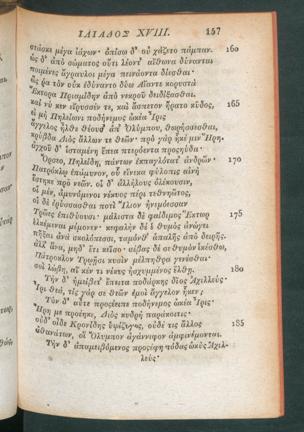 ΙΛΙΑΔΟΣ XVIII. 157
στάσκε μέγα ἰάχων· ὀπίσω δ' οὐ χάζετο πάμπαν. 160
ὡς δ' ἀπὸ σώματος οὔτι λέοντ' αἴθωνα δύνανται
ποιμένες ἄγραυλοι μέγα πεινάοντα δίεσθαι·
ὥς ῥα τὸν οὐκ ἐδύναντο δύω Αἴαντε κορυστὰ
Ἕκτορα Πριαμίδην ἀπὸ νεκροῦ δειδίξασθαι.
καί νύ κεν εἴρυσσέν τε, καὶ ἄσπετον ἤρατο κῦδος, 165
εἰ μὴ Πηλείωνι ποδήνεμος ὠκέα Ἶρις
ἄγγελος ἦλθε θέουσ' ἀπ' Ὀλύμπου, θωρήσσεσθαι,
κρύβδα Διὸς ἄλλων τε θεῶν· πρὸ γάρ ἧκέ μιν Ἥρη.
ἀγχοῦ δ' ἱσταμένη ἔπεα πτερόεντα προσηύδα·
Ὄρσεο, Πηλείδη, πάντων ἐκπαγλότατ' ἀνδρῶν· 170
Πατρόκλῳ ἐπάμυνον, οὗ εἵνεκα φύλοπις αἰνὴ
ἕστηκε πρὸ νεῶν. οἱ δ' ἀλλήλους ὀλέκουσιν,
οἱ μὲν, ἀμυνόμενοι νέκυος πέρι τεθνηῶτος,
οἱ δὲ ἐρύσσασθαι ποτὶ Ἴλιον ἠνεμόεσσαν
Τρῶες ἐπιθύουσι· μάλιστα δὲ φαίδιμος Ἕκτωρ 175
ἑλκέμεναι μέμονεν· κεφαλὴν δέ ἑ θυμὸς ἀνώγει
πῆξαι ἀνὰ σκολόπεσσι, ταμόνθ' ἁπαλῆς ἀπὸ δειρῆς.
ἀλλ' ἄνα, μηδ' ἔτι κεῖσο· σέβας δέ σε θυμὸν ἱκέσθω,
Πάτροκλον Τρωῇσι κυσὶν μέλπηθρα γενέσθαι·
σοὶ λώβη, αἴ κέν τι νέκυς ᾐσχυμμένος ἔλθῃ. 180
Τὴν δ' ἠμείβετ' ἔπειτα ποδάρκης δῖος Ἀχιλλεύς·
Ἶρι θεὰ, τίς γάρ σε θεῶν ἐμοὶ ἄγγελον ἧκεν;
Τὸν δ' αὖτε προσέειπε ποδήνεμος ὠκέα Ἶρις·
Ἥρη με προέηκε, Διὸς κυδρὴ παράκοιτις·
οὐδ' οἶδε Κρονίδης ὑψίζυγος, οὐδέ τις ἄλλος 185
ἀθανάτων, οἳ Ὄλυμπον ἀγάννιφον ἀμφινέμονται.
Τὴν δ' ἀπαμειβόμενος προσέφη πόδας ὠκὺς Ἀχιλ-
λεύς·